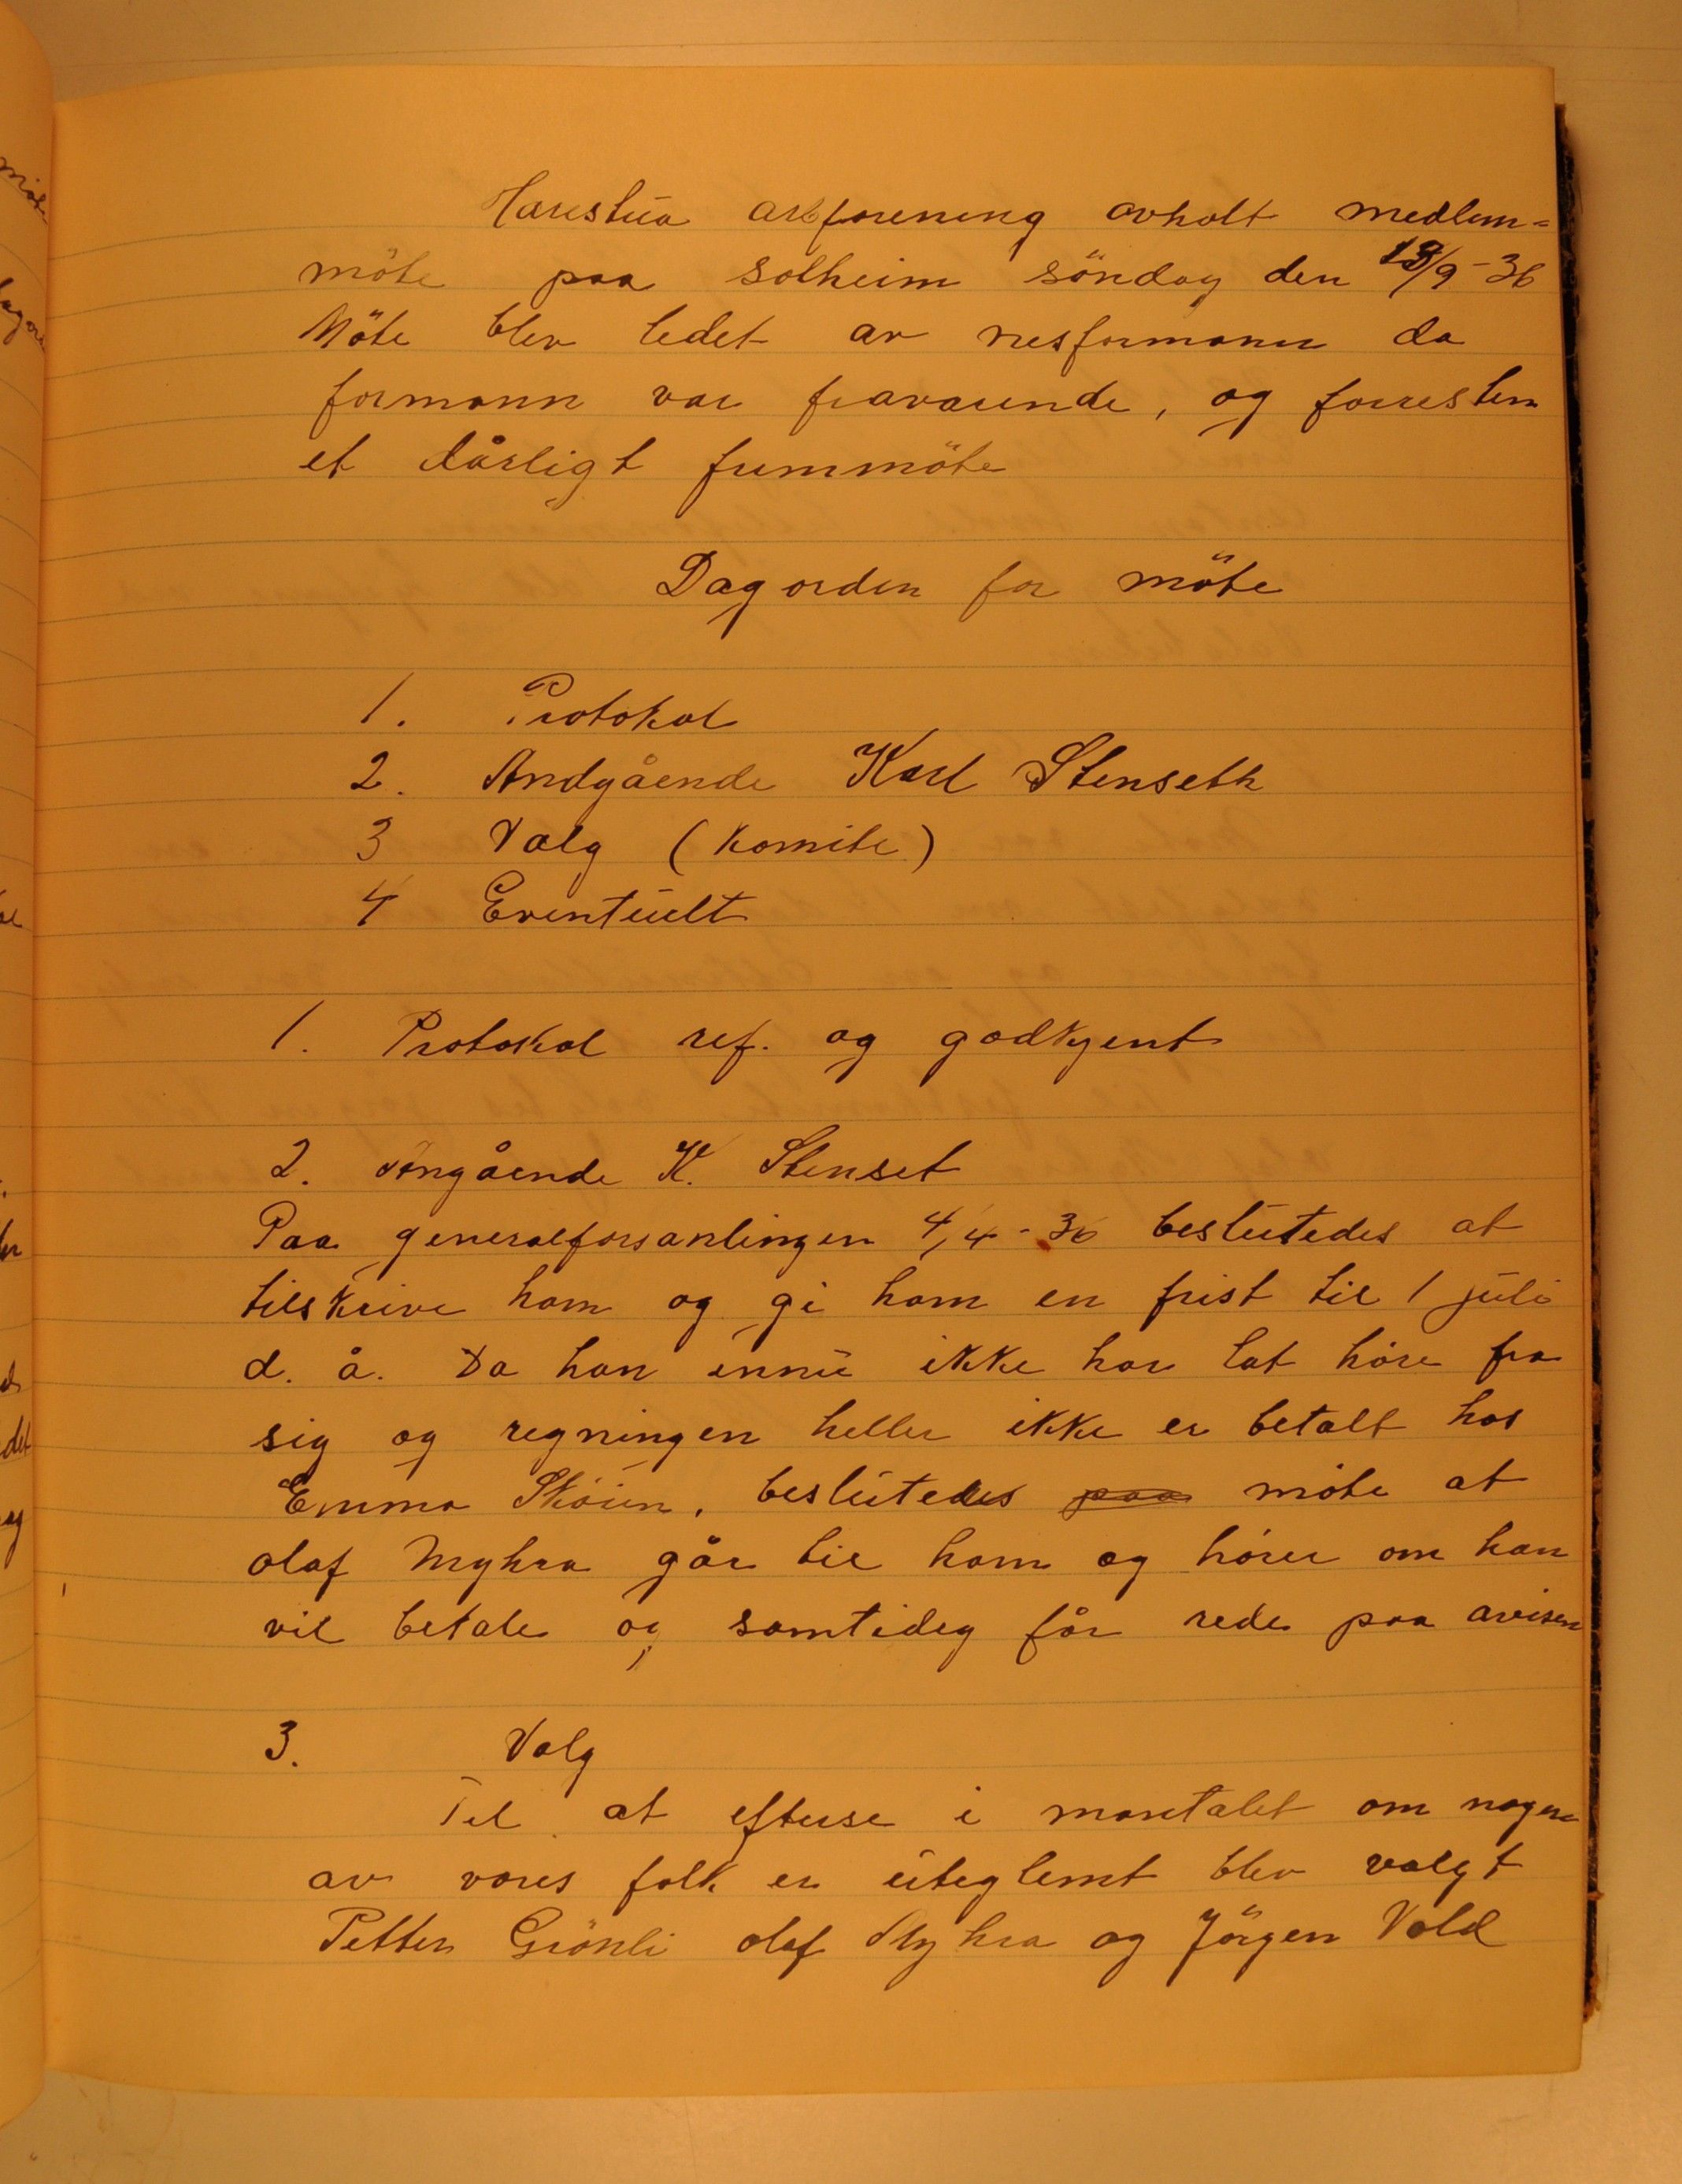 Harestua arbforening avholt medlem=
möte paa Solheim söndag den 13/9-36
Möte blev ledet av nesformann da
formann var fraværende, og forresten
et dårligt fremmöte
Dagorden for möte
1. Protokol
2. Andgående Karl Stenseth
3 Valg (Komite)
4 Eventuelt
1. Protokol ref. og godkjent
2. Angående K. Stenset
Paa generalforsamlingen 4/4-36 beslutedes at
tilskrive ham og gi ham en frist til 1 juli
d. å. Da han ennu ikke har lat höre fra
sig og regningen heller ikke er betalt hos
Emma Sköien, beslutedes paa möte at
olaf Myhra går til ham og hörer om han
vil betale og samtideg får rede paa avisen
3. Valg
Til at efterse i mantalet om nogen
av vores folk er uteglemt blev valgt
Petter Grönli olaf Myhra og Jörgen Vold